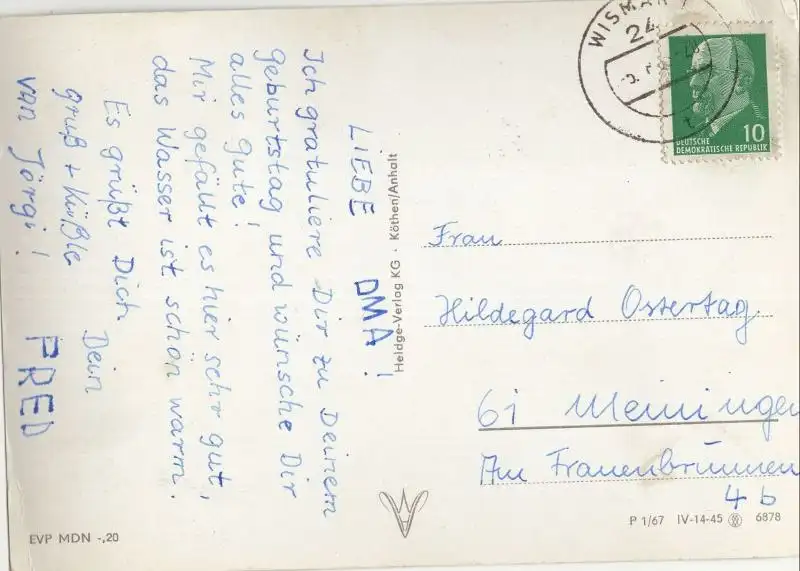 LIEBE OMA!
Ich gratuliere Dir zu Deinem
Geburtstag und wünsche Dir
alles Gute!
Mir gefällt es hier sehr gut,
das Wasser ist schön warm.
Es grüßt Dich
Dein
FRED
gruß + Küßle
von Jörgi!
WISMAR
24
DEUTSCHE
DEMOKRATISCHE REPUBLIK
10
Heldge-Verlag KG · Köthen/Anhalt
Frau
Hildegard Ostertag
61 Meiningen
Am Frauenbrunnen
4 b
EVP MDN -,20
P 1/67 IV-14-45 6878